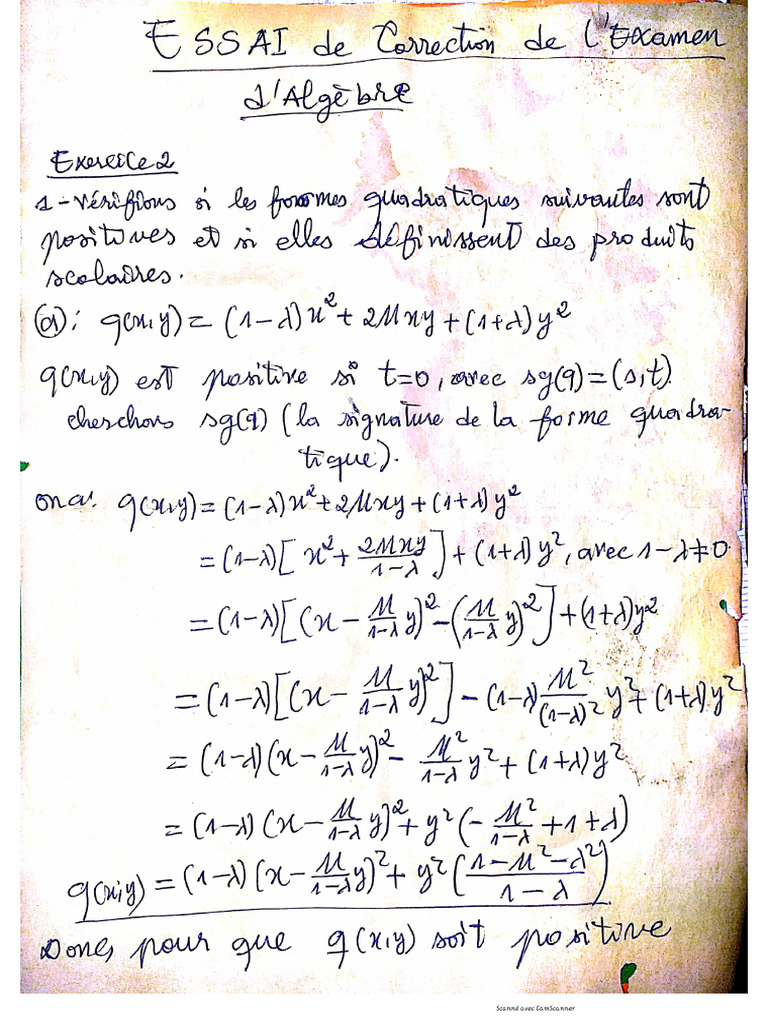 ESSAI de Correction de l'Examen
d'Algèbre
Exercice 2
1-Vérifions si les formes quadratiques suivantes sont
positives et si elles définissent des produits
scalaires.
(a): q(x,y) = (1-λ)x² + 2μxy + (1+λ)y²
q(x,y) est positive si t=0, avec sg(q)=(s,t).
cherchons sg(q) (la signature de la forme quadra-
tique).
ona: q(x,y) = (1-λ)x² + 2μxy + (1+λ)y²
= (1-λ)[x² + 2μxy/(1-λ)] + (1+λ)y², avec 1-λ≠0.
= (1-λ)[(x - μ/(1-λ) y)² - (μ/(1-λ) y)²] + (1+λ)y²
= (1-λ)[(x - μ/(1-λ) y)²] - (1-λ) μ²/(1-λ)² y² + (1+λ)y²
= (1-λ)(x - μ/(1-λ) y)² - μ²/(1-λ) y² + (1+λ)y²
= (1-λ)(x - μ/(1-λ) y)² + y²(-μ²/(1-λ) + 1 + λ)
q(x,y) = (1-λ)(x - μ/(1-λ) y)² + y²((1-μ²-λ²)/(1-λ))
Donc, pour que q(x,y) soit positive
Scanné avec CamScanner